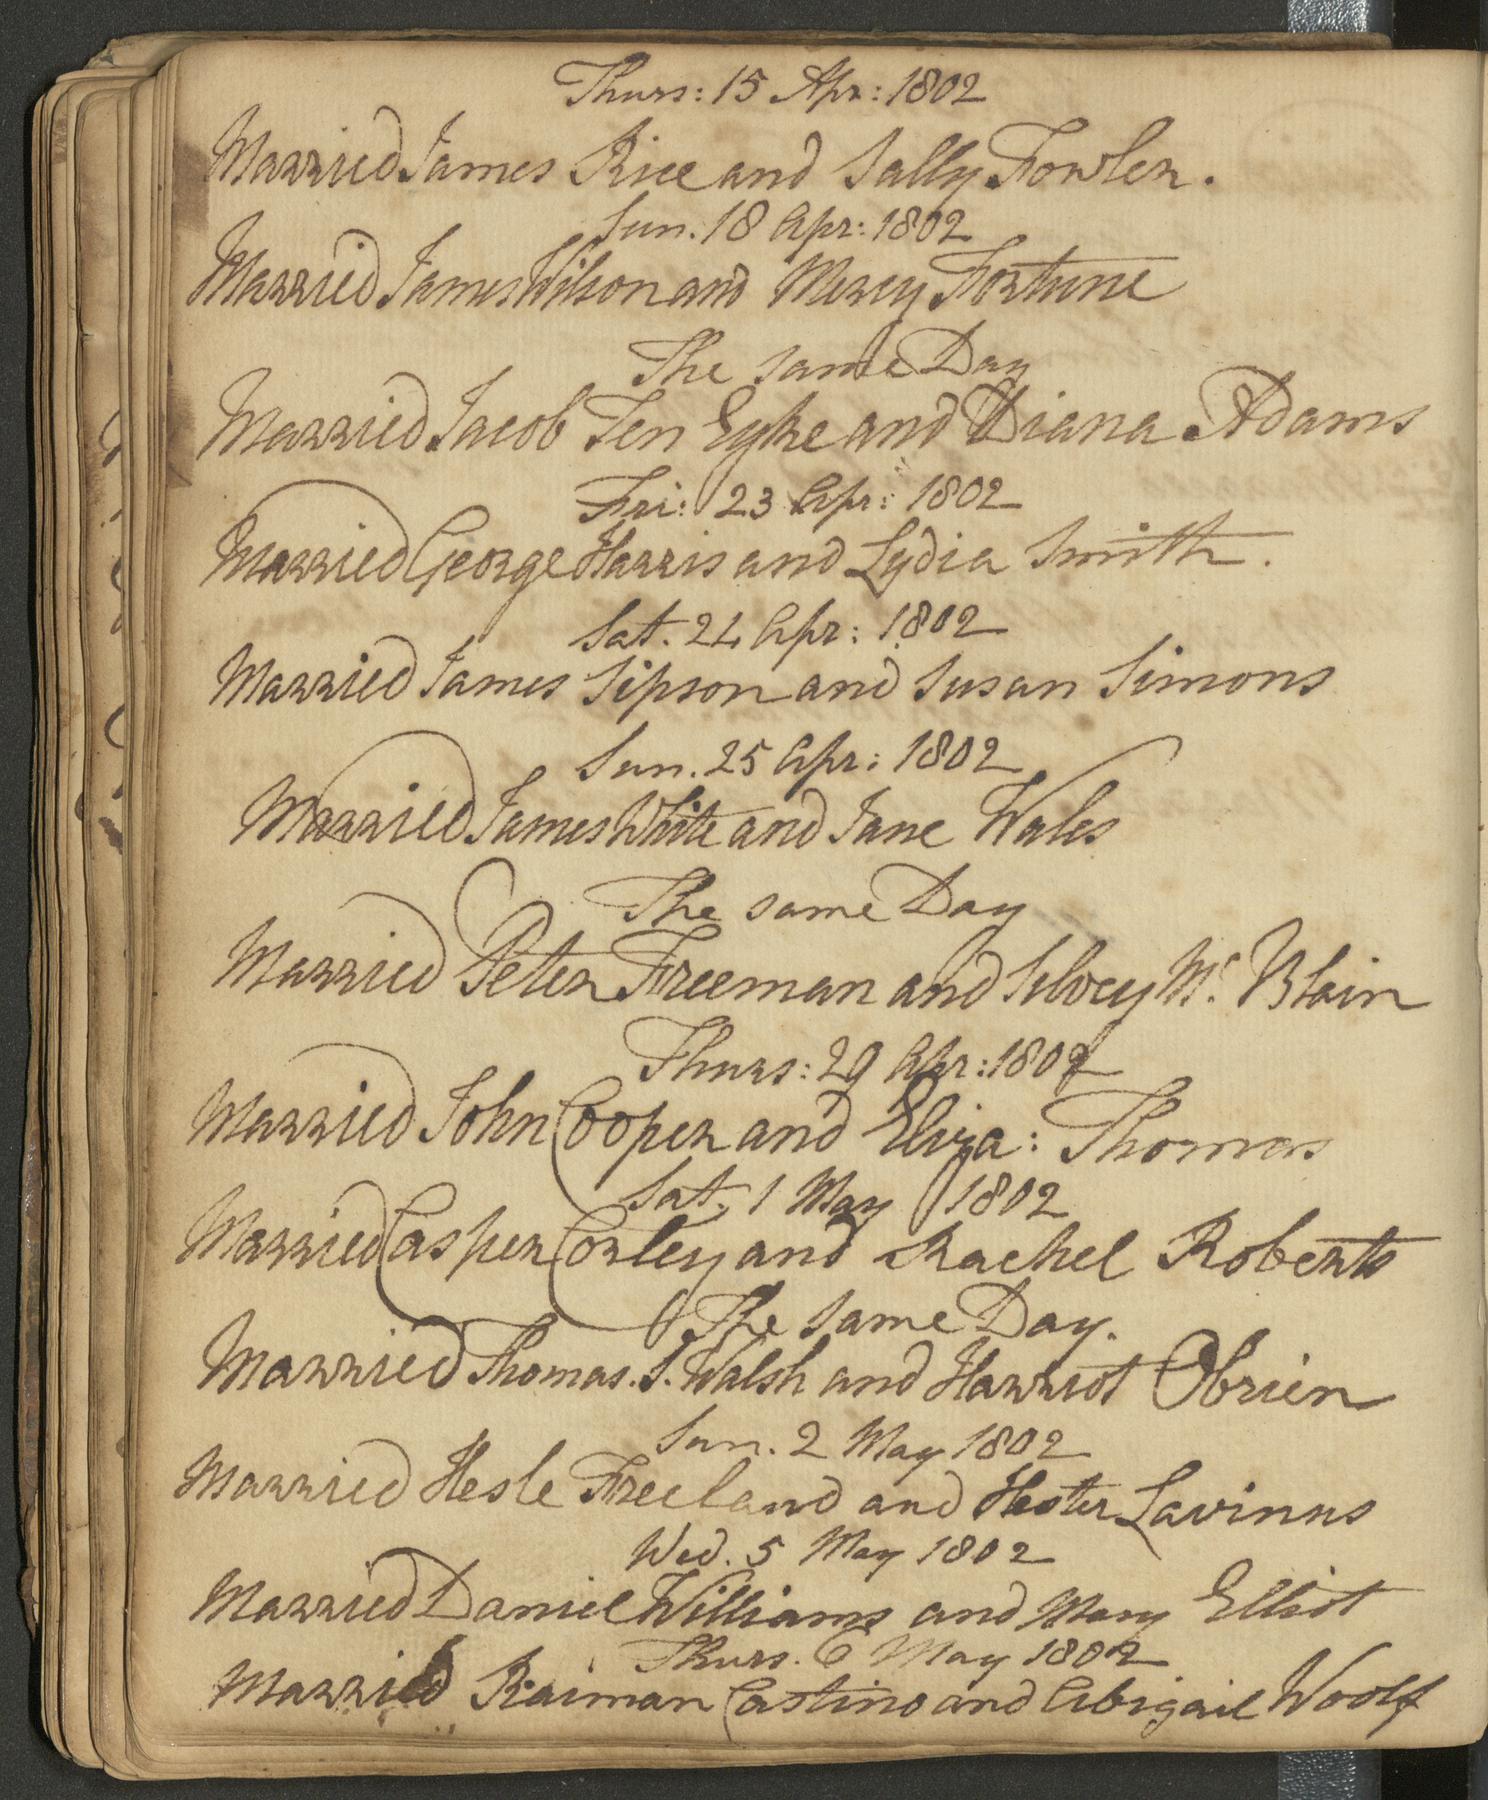 Thurs: 15 Apr: 1802
Married James Rice and Sally Fowler.
Sun. 18 Apr: 1802
Married James Wilson and Mercy Fortune
The same Day
Married Jacob Ten Eyke and Diana Adams
Fri: 23 Apr: 1802
Married George Harris and Lydia Smith.
Sat. 24 Apr: 1802
Married James Sipson and Susan Simons
Sun. 25 Apr: 1802
Married James White and Jane Wales
The same Day
Married Peter Freeman and Silvey Mc. Blain
Thurs: 29 Apr: 1802
Married John Cooper and Eliza: Thomas
Sat. 1 May 1802
Married Casper Corley and Rachel Roberts
The same Day.
Married Thomas. S. Walsh and Harriot Obrien
Sun. 2 May 1802
Married Hesle Freeland and Hester Lavinus
Wed. 5 May 1802
Married Daniel Williams and Mary Elliot
Thurs. 6 May 1802
Married Raiman Castino and Abigail Woolf